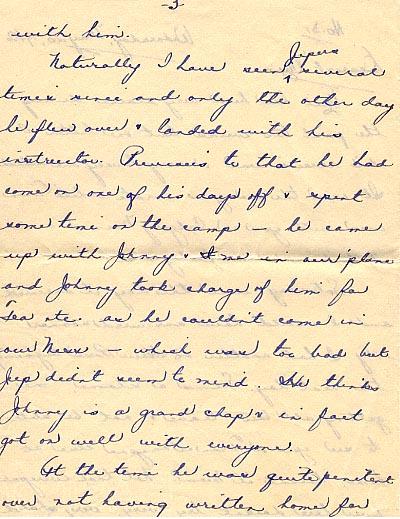 -3
with him.
Naturally I have seen Jepers several
times since and only the other day
he flew over & landed with his
instructor. Previous to that he had
come on one of his days off & spent
some time on the camp - he came
up with Johnny & me in our 'plane
and Johnny took charge of him for
Tea etc. as he couldn't come in
our Mess - which was too bad but
Jep didn't seem to mind. He thinks
Johnny is a grand chap & in fact
got on well with everyone.
At the time he was quite penitent
over not having written home for